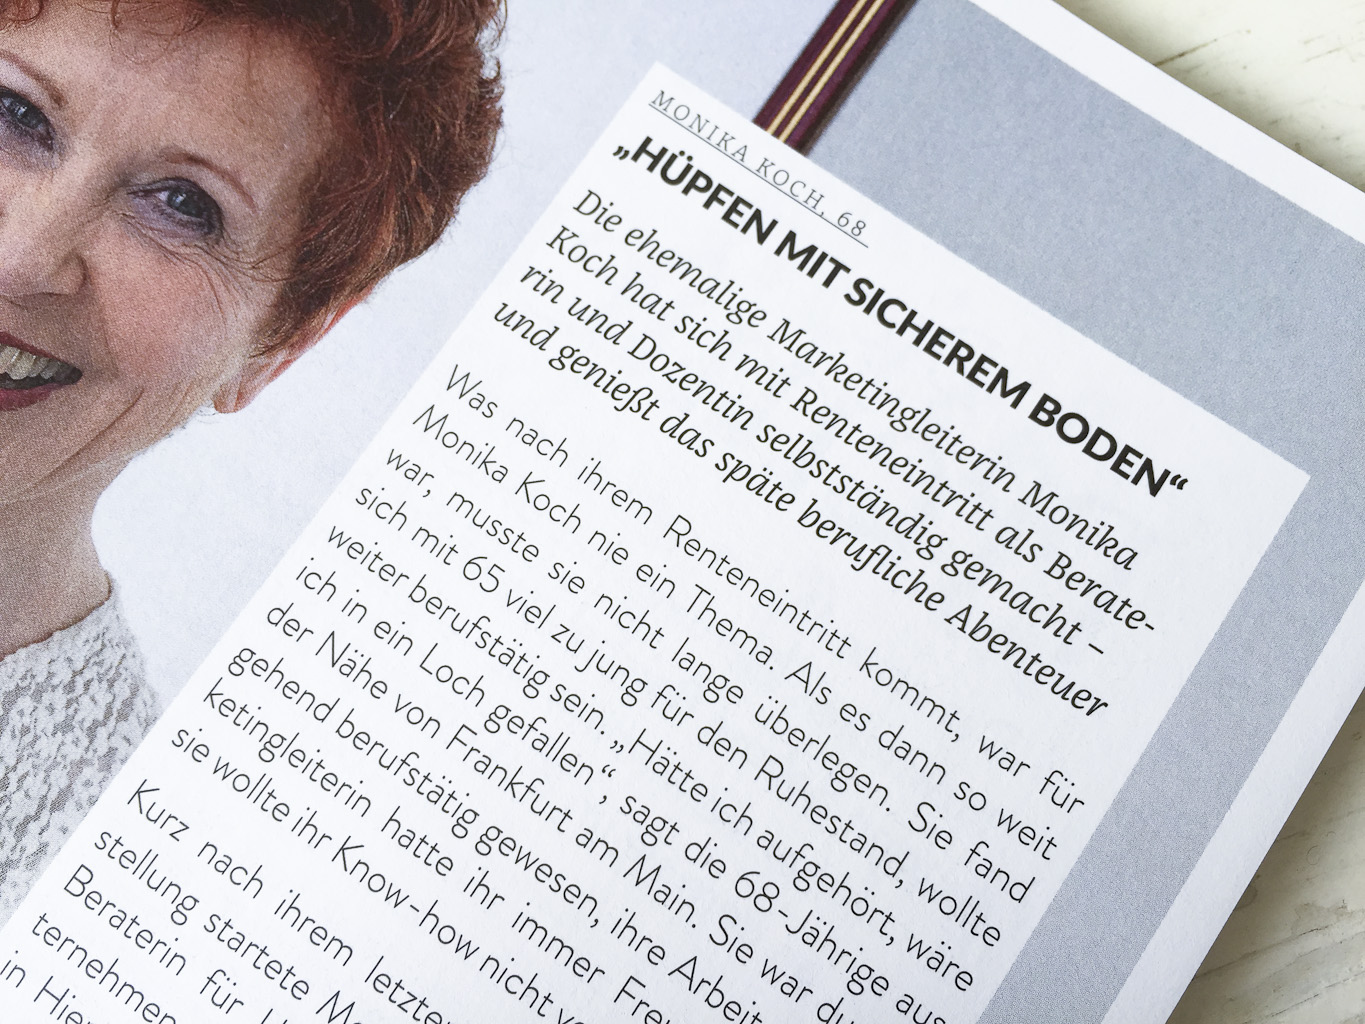 MONIKA KOCH, 68
„HÜPFEN MIT SICHEREM BODEN“
Die ehemalige Marketingleiterin Monika
Koch hat sich mit Renteneintritt als Berate-
rin und Dozentin selbstständig gemacht –
und genießt das späte berufliche Abenteuer
Was nach ihrem Renteneintritt kommt, war für
Monika Koch nie ein Thema. Als es dann so weit
war, musste sie nicht lange überlegen. Sie fand
sich mit 65 viel zu jung für den Ruhestand, wollte
weiter berufstätig sein. „Hätte ich aufgehört, wäre
ich in ein Loch gefallen“, sagt die 68-Jährige aus
der Nähe von Frankfurt am Main. Sie war du
gehend berufstätig gewesen, ihre Arbeit
ketingleiterin hatte ihr immer Freu
sie wollte ihr Know-how nicht ve
Kurz nach ihrem letzten
stellung startete Mo
Beraterin für
ternehmen
in Hier